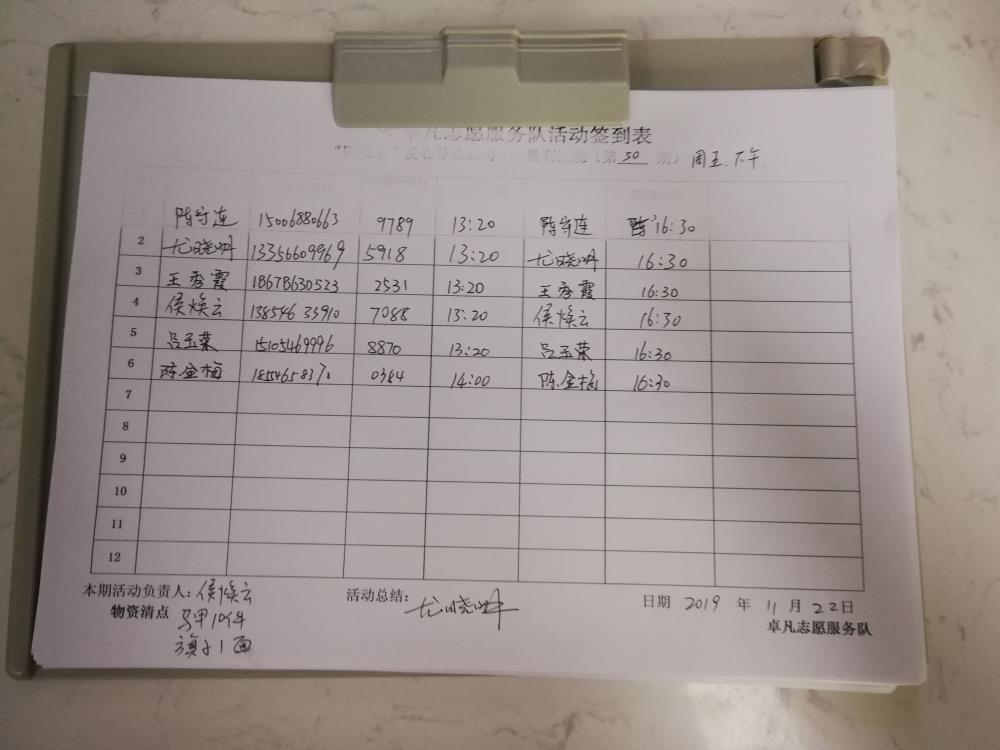 卓凡志愿服务队活动签到表
(第 30 期) 周五.下午.
1 陈守连 15006880663 9789 13:20 陈守连 16:30
2 尤晓 13356609969 5918 13:20 尤晓 16:30
3 王秀霞 18678630523 2531 13:20 王秀霞 16:30
4 侯焕云 13854633910 7088 13:20 侯焕云 16:30
5 吕玉荣 15105469996 8870 13:20 吕玉荣 16:30
6 陈金梅 0384 14:00 陈金梅 16:30
7
8
9
10
11
12
本期活动负责人: 侯焕云 活动总结: 尤晓 日期 2019 年 11 月 22 日
物资清点 马甲10件 卓凡志愿服务队
旗子1面